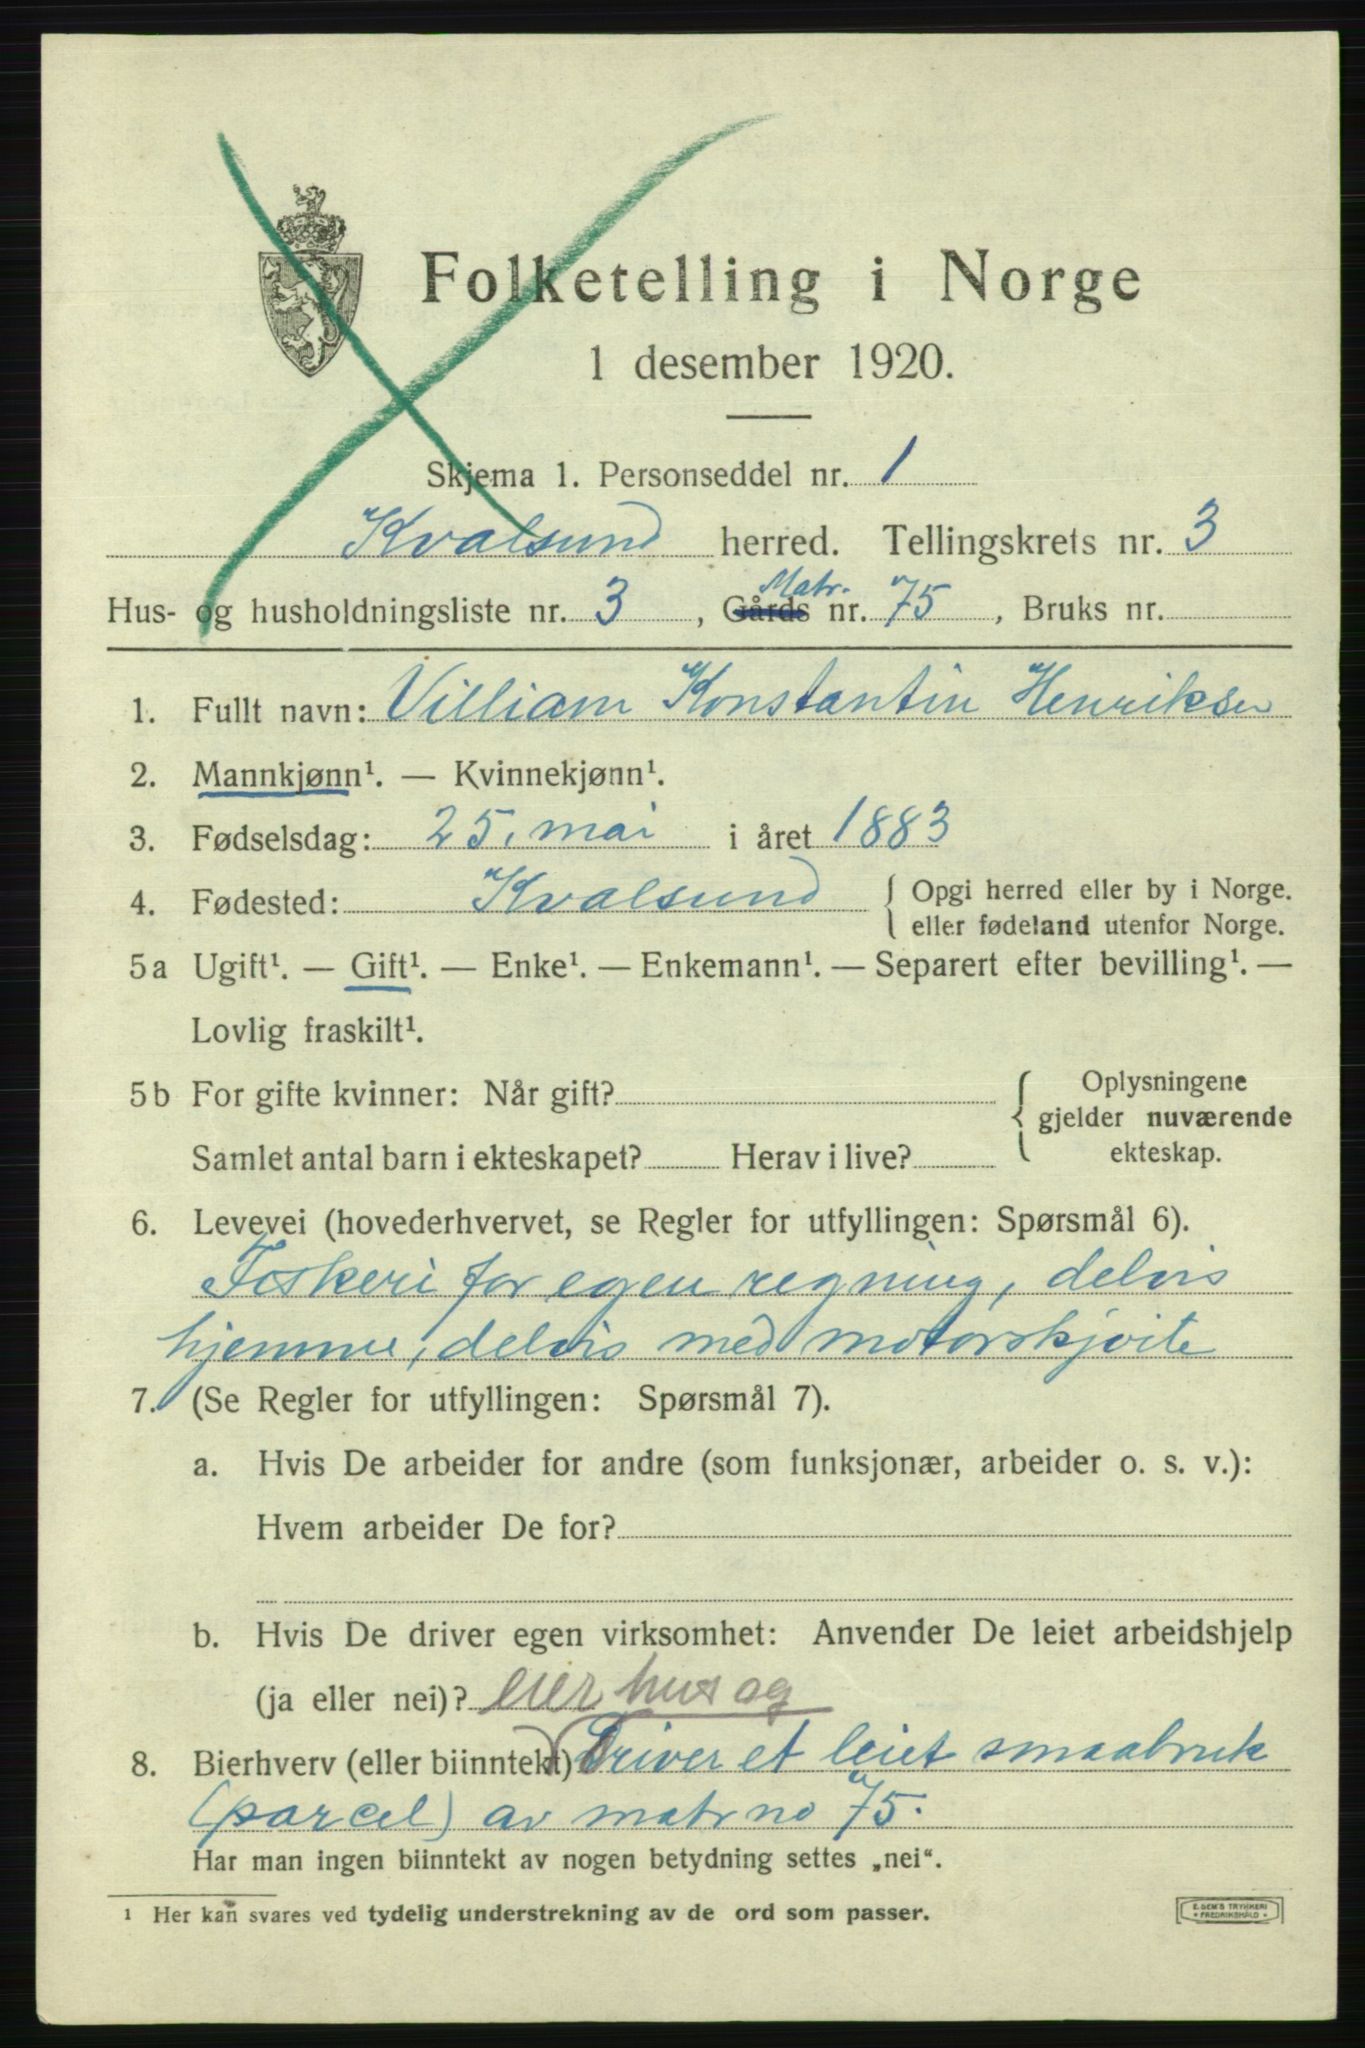 Folketelling i Norge
1 desember 1920.
Skjema 1. Personseddel nr. 1
Kvalsund herred. Tellingskrets nr. 3
Matr.
Hus- og husholdningsliste nr. 3, Gårds nr. 75, Bruks nr.
1. Fullt navn: Villiam Konstantin Henriksen
2. Mannkjønn¹. — Kvinnekjønn¹.
3. Fødselsdag: 25. mai i året 1883
4. Fødested: Kvalsund { Opgi herred eller by i Norge.
eller fødeland utenfor Norge.
5a Ugift¹. — Gift¹. — Enke¹. — Enkemann¹. — Separert efter bevilling¹. —
Lovlig fraskilt¹.
5b For gifte kvinner: Når gift? { Oplysningene
gjelder nuværende
Samlet antal barn i ekteskapet? Herav i live? ekteskap.
6. Levevei (hovederhvervet, se Regler for utfyllingen: Spørsmål 6).
Fiskeri for egen regning, delvis
hjemme, delvis med motorskjøite
7. (Se Regler for utfyllingen: Spørsmål 7).
a. Hvis De arbeider for andre (som funksjonær, arbeider o. s. v.):
Hvem arbeider De for?
b. Hvis De driver egen virksomhet: Anvender De leiet arbeidshjelp
(ja eller nei)? eier hus og
8. Bierhverv (eller biinntekt) Driver et leiet smaabruk
(parcel) av matr no 75.
Har man ingen biinntekt av nogen betydning settes „nei“.
¹ Her kan svares ved tydelig understrekning av de ord som passer.
E. SEM'S TRYKKERI
FREDRIKSHALD